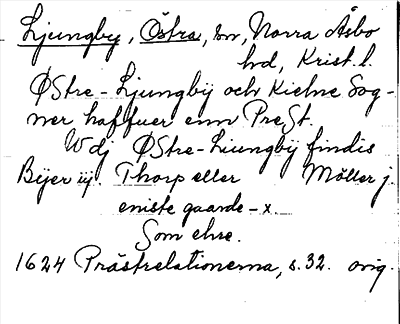 Ljungby, Östra, sn, Norra Åsbo
hd, Krist. l.
ØStre-Ljungbÿ och Kielne Sog-
ner haffuer enn PreSt.
Wdj ØStre-Liungbÿ findis
Bÿer iij. Thorp eller Möller j.
eniste gaarde - x.
Som ehre.
1624 Prästrelationerna, s. 32. orig.